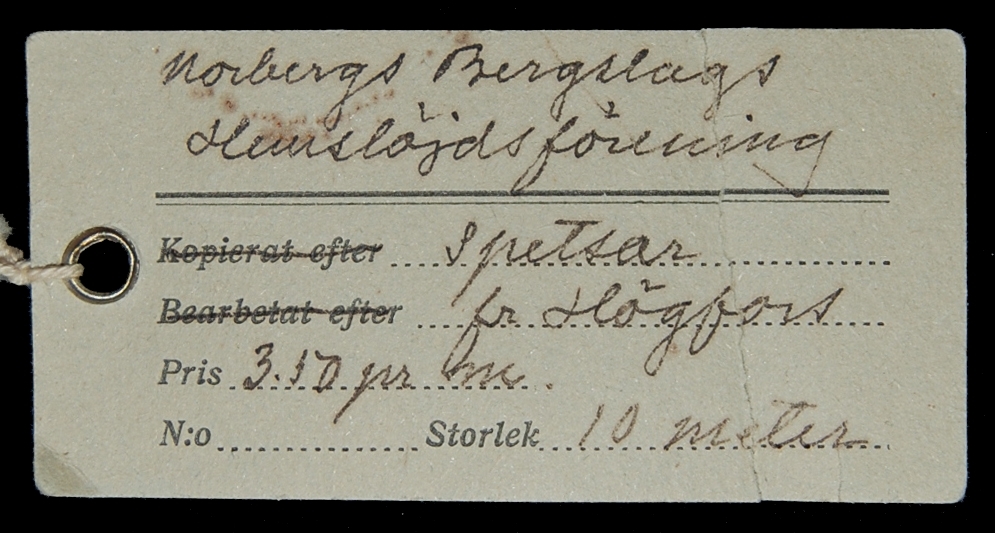 Norbergs Bergslags
Hemslöjdsförening
Kopierat efter Spetsar
Bearbetat efter fr Högfors
Pris 3.50 pr m.
N:o Storlek 10 meter